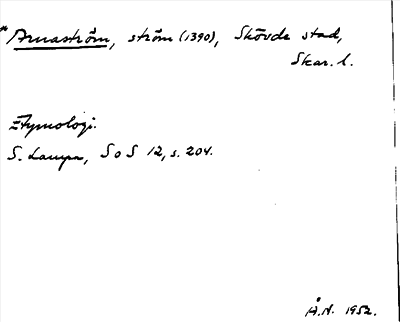 *Arnaström, ström (1390), Skövde stad,
Skar. l.
Etymologi.
S. Lampa, SoS 12, s. 204.
Å.N. 1952.